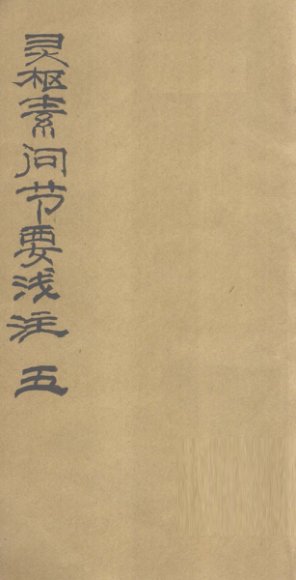 灵枢素问节要浅注 五